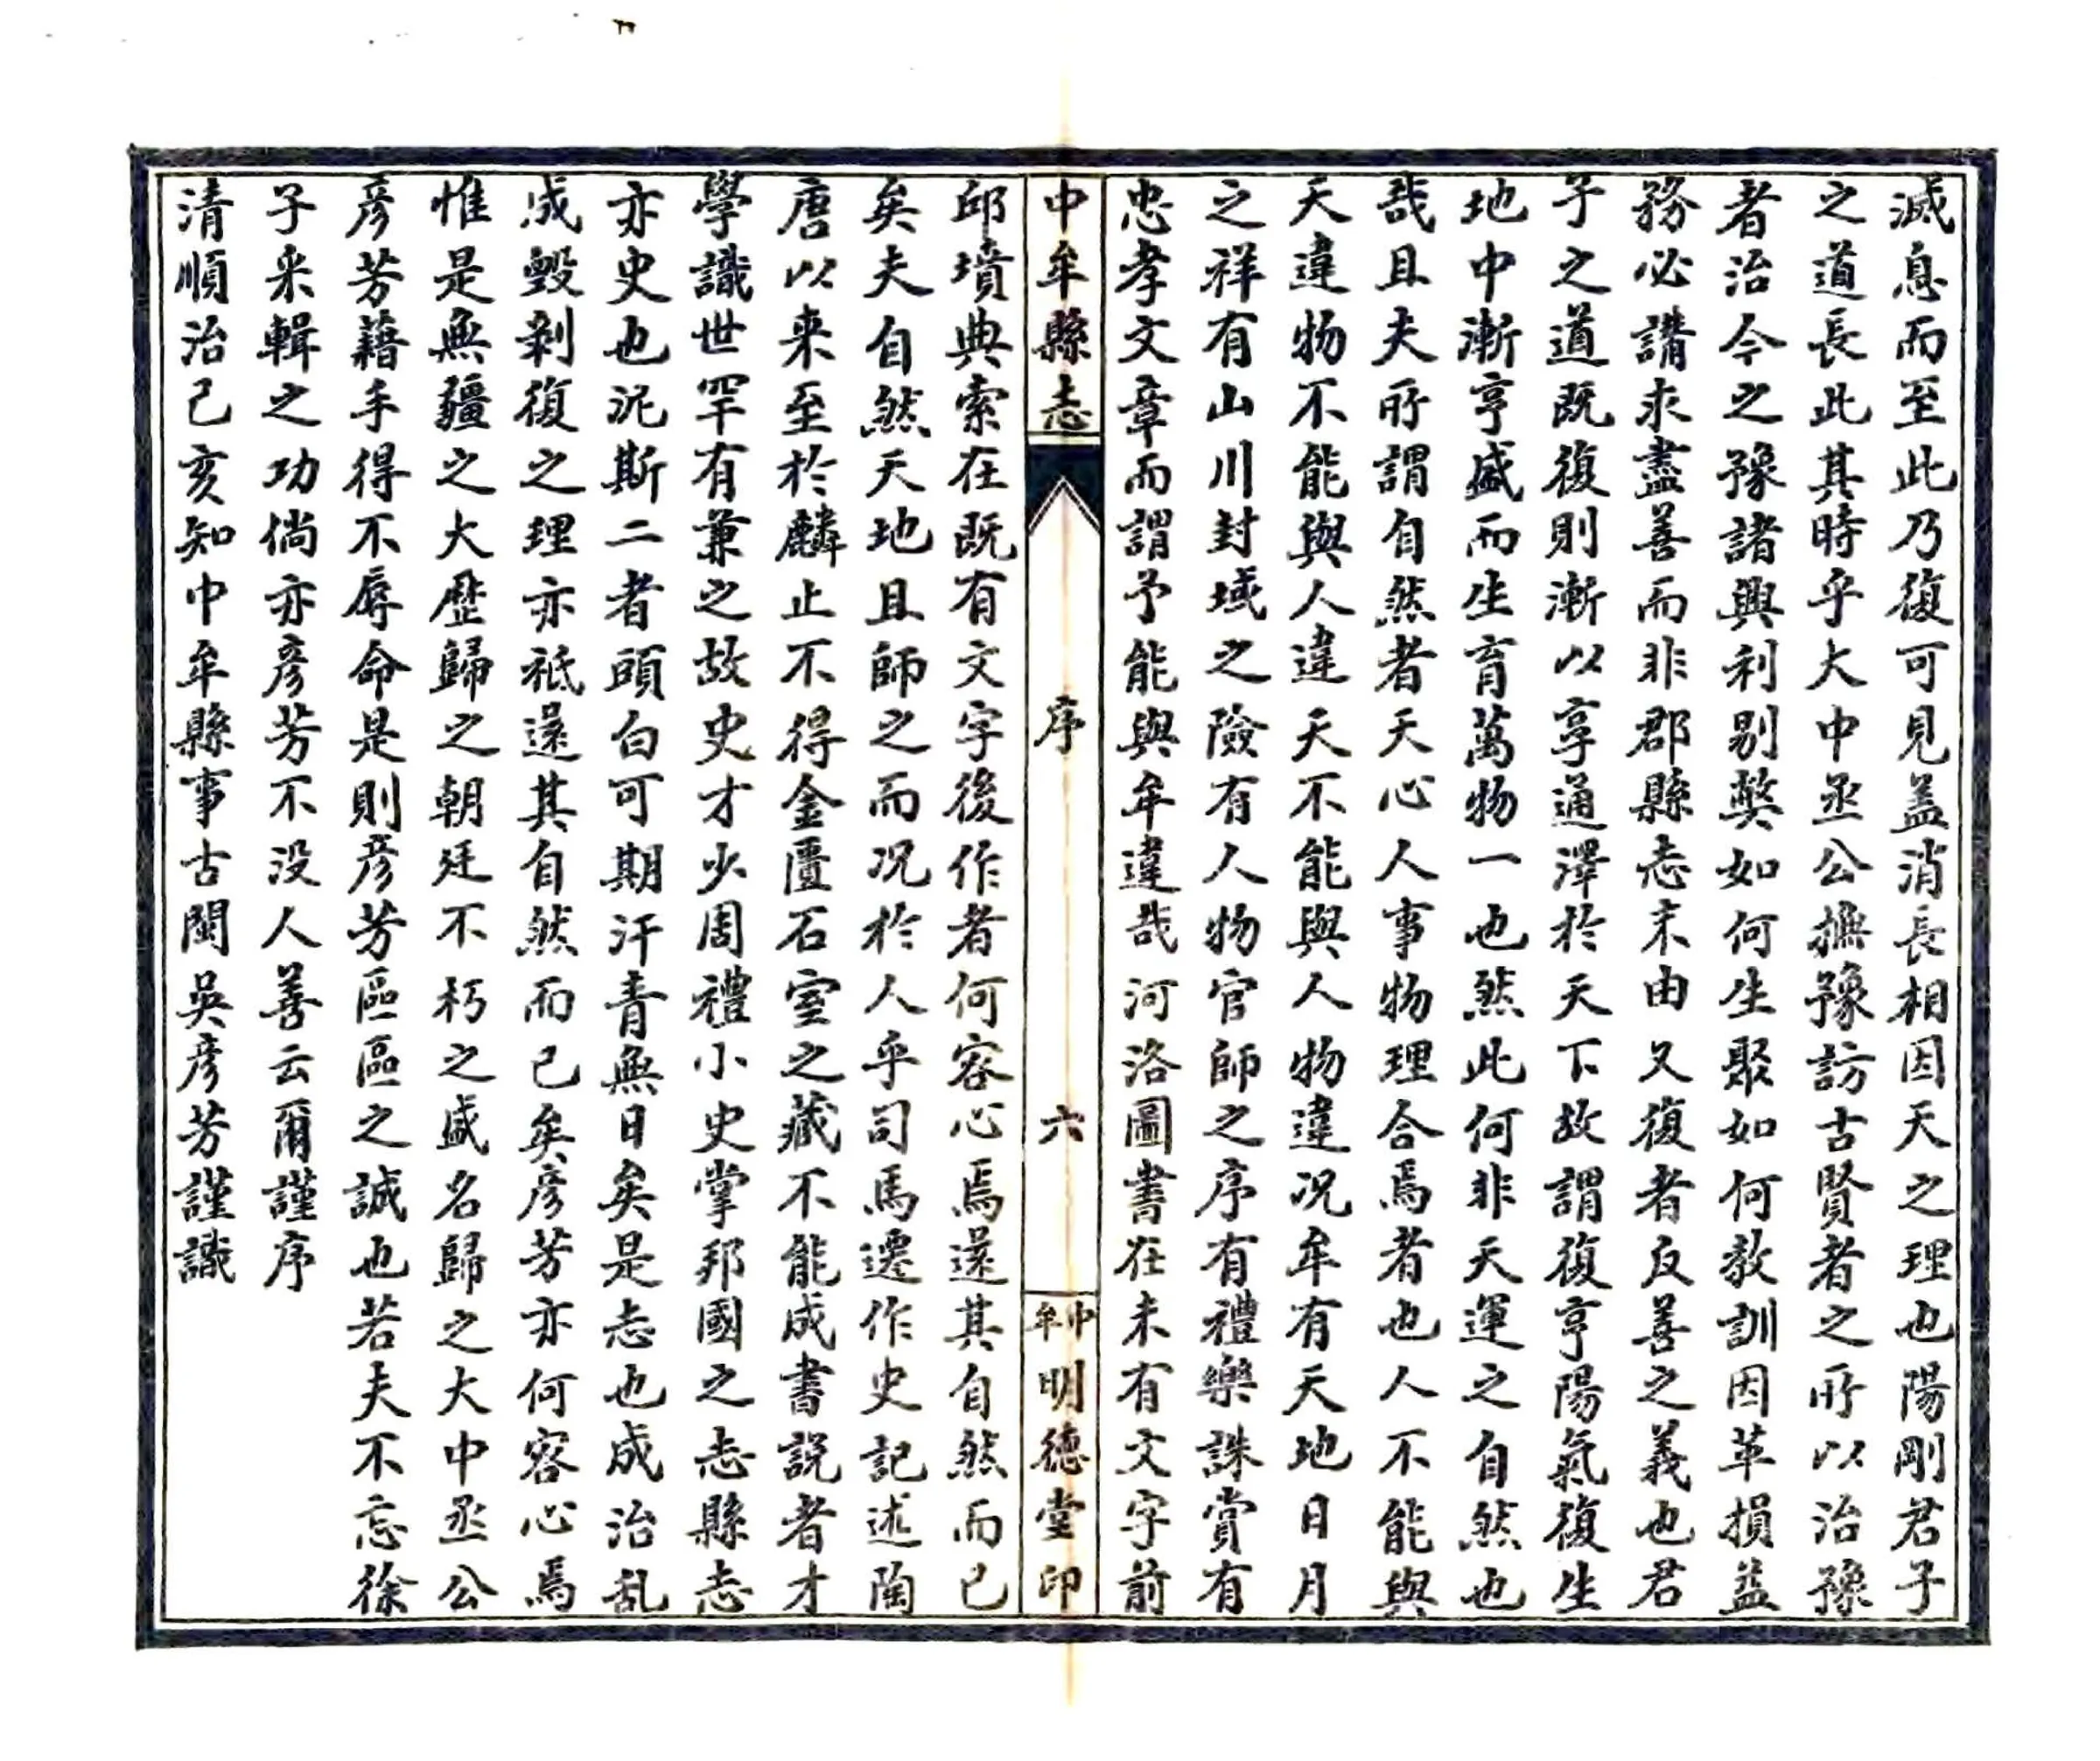 滅息而至此乃復可見盖消長相因天之理也陽剛君子
之道長此其時乎大中丞公撫豫訪古賢者之所以治豫
者治今之豫諸興利剔獘如何生聚如何教訓因革損益
務必講求盡善而非郡縣志末由又復者反善之義也君
子之道既復則漸以享通澤於天下故謂復亨陽氣復生
地中漸亨盛而生育萬物一也然此何非天運之自然也
哉且夫所謂自然者天心人事物理合焉者也人不能與
天違物不能與人違天不能與人物違况牟有天地日月
之祥有山川封域之險有人物官師之序有禮樂誅賞有
忠孝文章而謂予能與牟違哉河洛圖書在未有文字前
中牟縣志 序 六 中牟明德堂印
邱墳典索在既有文字後作者何容心焉還其自然而已
矣夫自然天地且師之而况於人乎司馬遷作史記述陶
唐以来至於麟止不得金匱石室之藏不能成書説者才
學識世罕有兼之故史才少周禮小史掌邦國之志縣志
亦史也況斯二者頭白可期汗青無日矣是志也成治乱
成毀剥復之理亦祗還其自然而已矣彦芳亦何容心焉
惟是無疆之大歷歸之朝廷不朽之盛名歸之大中丞公
彦芳藉手得不辱命是則彦芳區區之誠也若夫不忘徐
子采輯之功倘亦彦芳不没人善云爾謹序
清順治己亥知中牟縣事古閩吳彦芳謹識